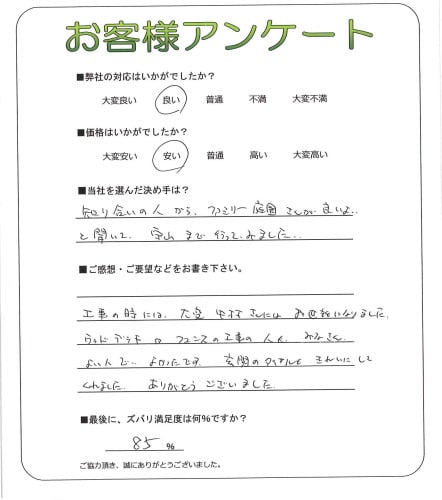 お客様アンケート
■弊社の対応はいかがでしたか？
大変良い 良い 普通 不満 大変不満
■価格はいかがでしたか？
大変安い 安い 普通 高い 大変高い
■当社を選んだ決め手は？
知り合いの人から、ファミリー庭園さんが良いよ…
と聞いて、守山まで行ってみました…
■ご感想・ご要望などをお書き下さい。
工事の時には、大変中村さんにはお世話になりました。
ウッドデッキやフェンスの工事の人も、みなさん、
よい人で…よかったです。玄関のタイルもきれいにして
くれました。ありがとうございました。
■最後に、ズバリ満足度は何%ですか？
85%
ご協力頂き、誠にありがとうございました。